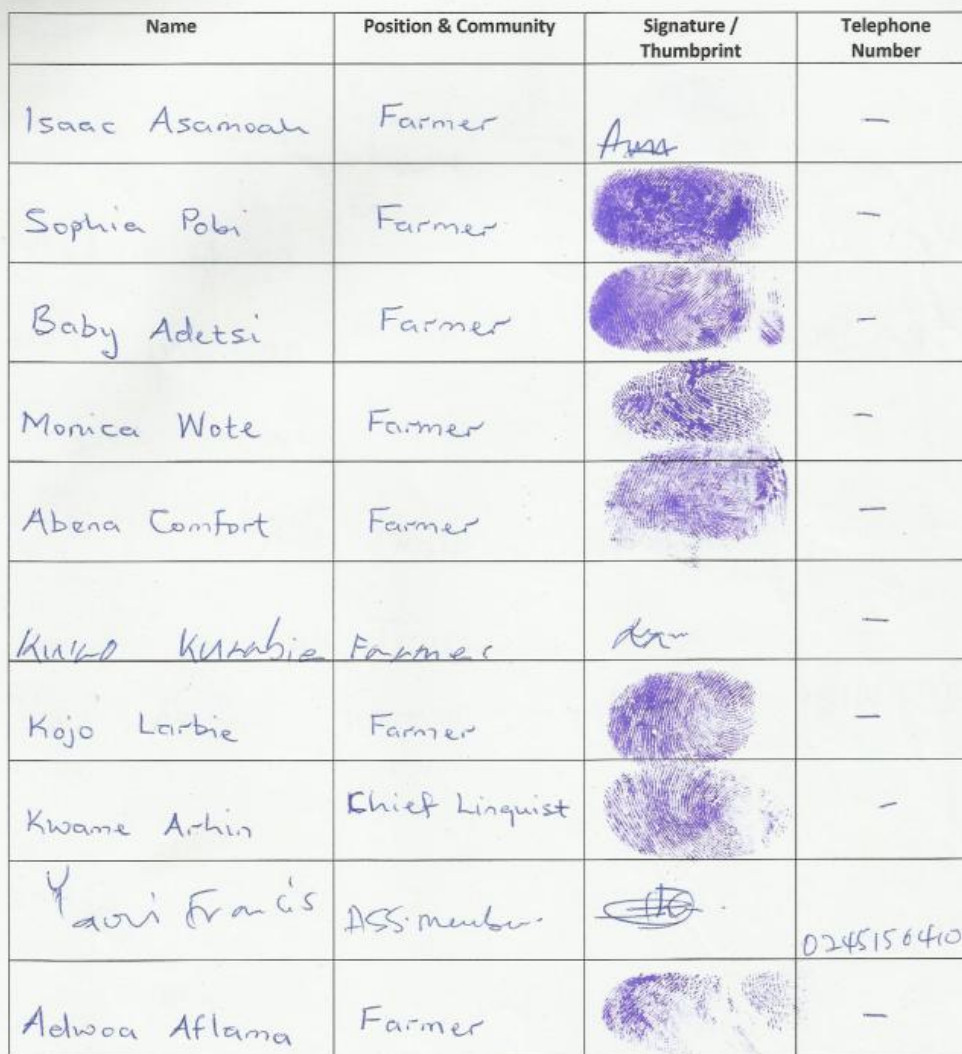 Name Position & Community Signature / Thumbprint Telephone Number
Isaac Asamoah Farmer —
Sophia Pobi Farmer —
Baby Adetsi Farmer —
Monica Wote Farmer —
Abena Comfort Farmer —
Farmer —
Kojo Larbie Farmer —
Kwame Arhin Chief Linquist —
Francis ASS. member 0245156410
Adwoa Aflama Farmer —